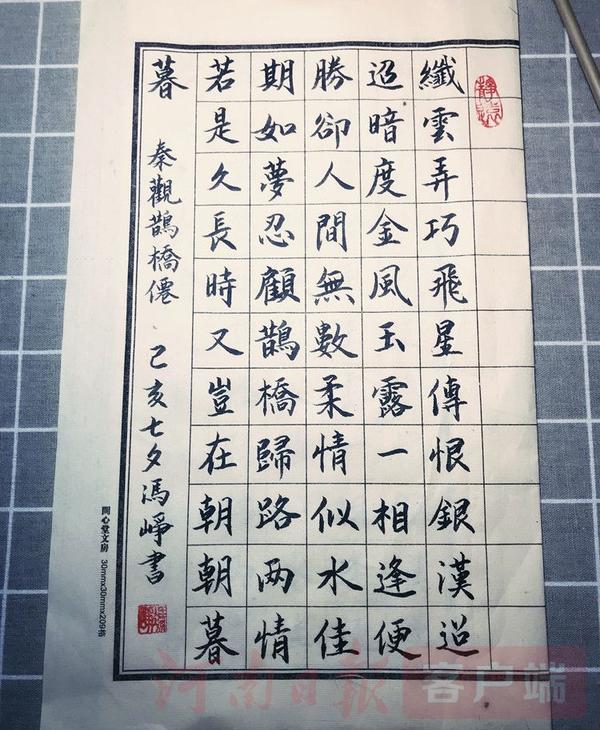 纖雲弄巧飛星傳恨銀漢迢
迢暗度金風玉露一相逢便
勝卻人間無數柔情似水佳
期如夢忍顧鵲橋歸路两情
若是久長時又豈在朝朝暮
暮 秦觀鵲橋僊 己亥七夕馮崢書
問心堂文房 30mmx30mmx209格
河南日報 客户端